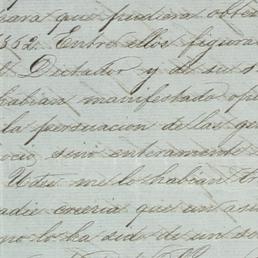 para que pudiera obten
852. Entre ellos figura
l Dictador y de su s
habian manifestado op
la persuacion de las ge
ocio sino enteramente
Udes me lo habian t
adie creeria que un asu
no lo ha sid de un so